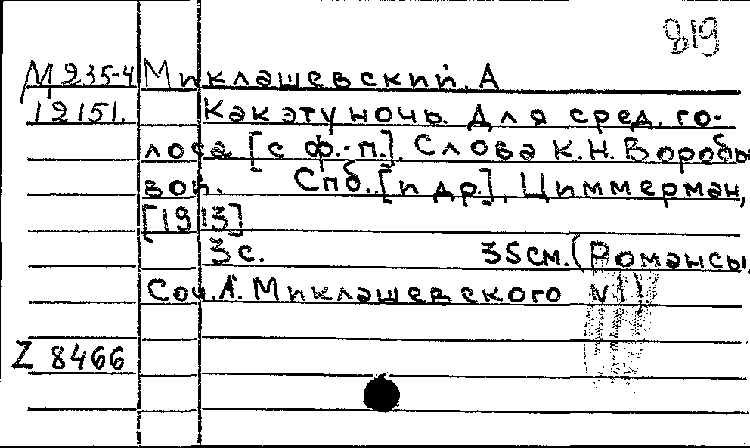 819
М 235-4 Миклашевский, А
12151. Как эту ночь. Для сред. го-
лоса [с ф.-п.]. Слова К.Н. Воробь
вой. Спб., [и др.], Циммерман,
[1913]
3 с. 35 см. (Романсы.
Соч. А. Миклашевского VI)
Z 8466